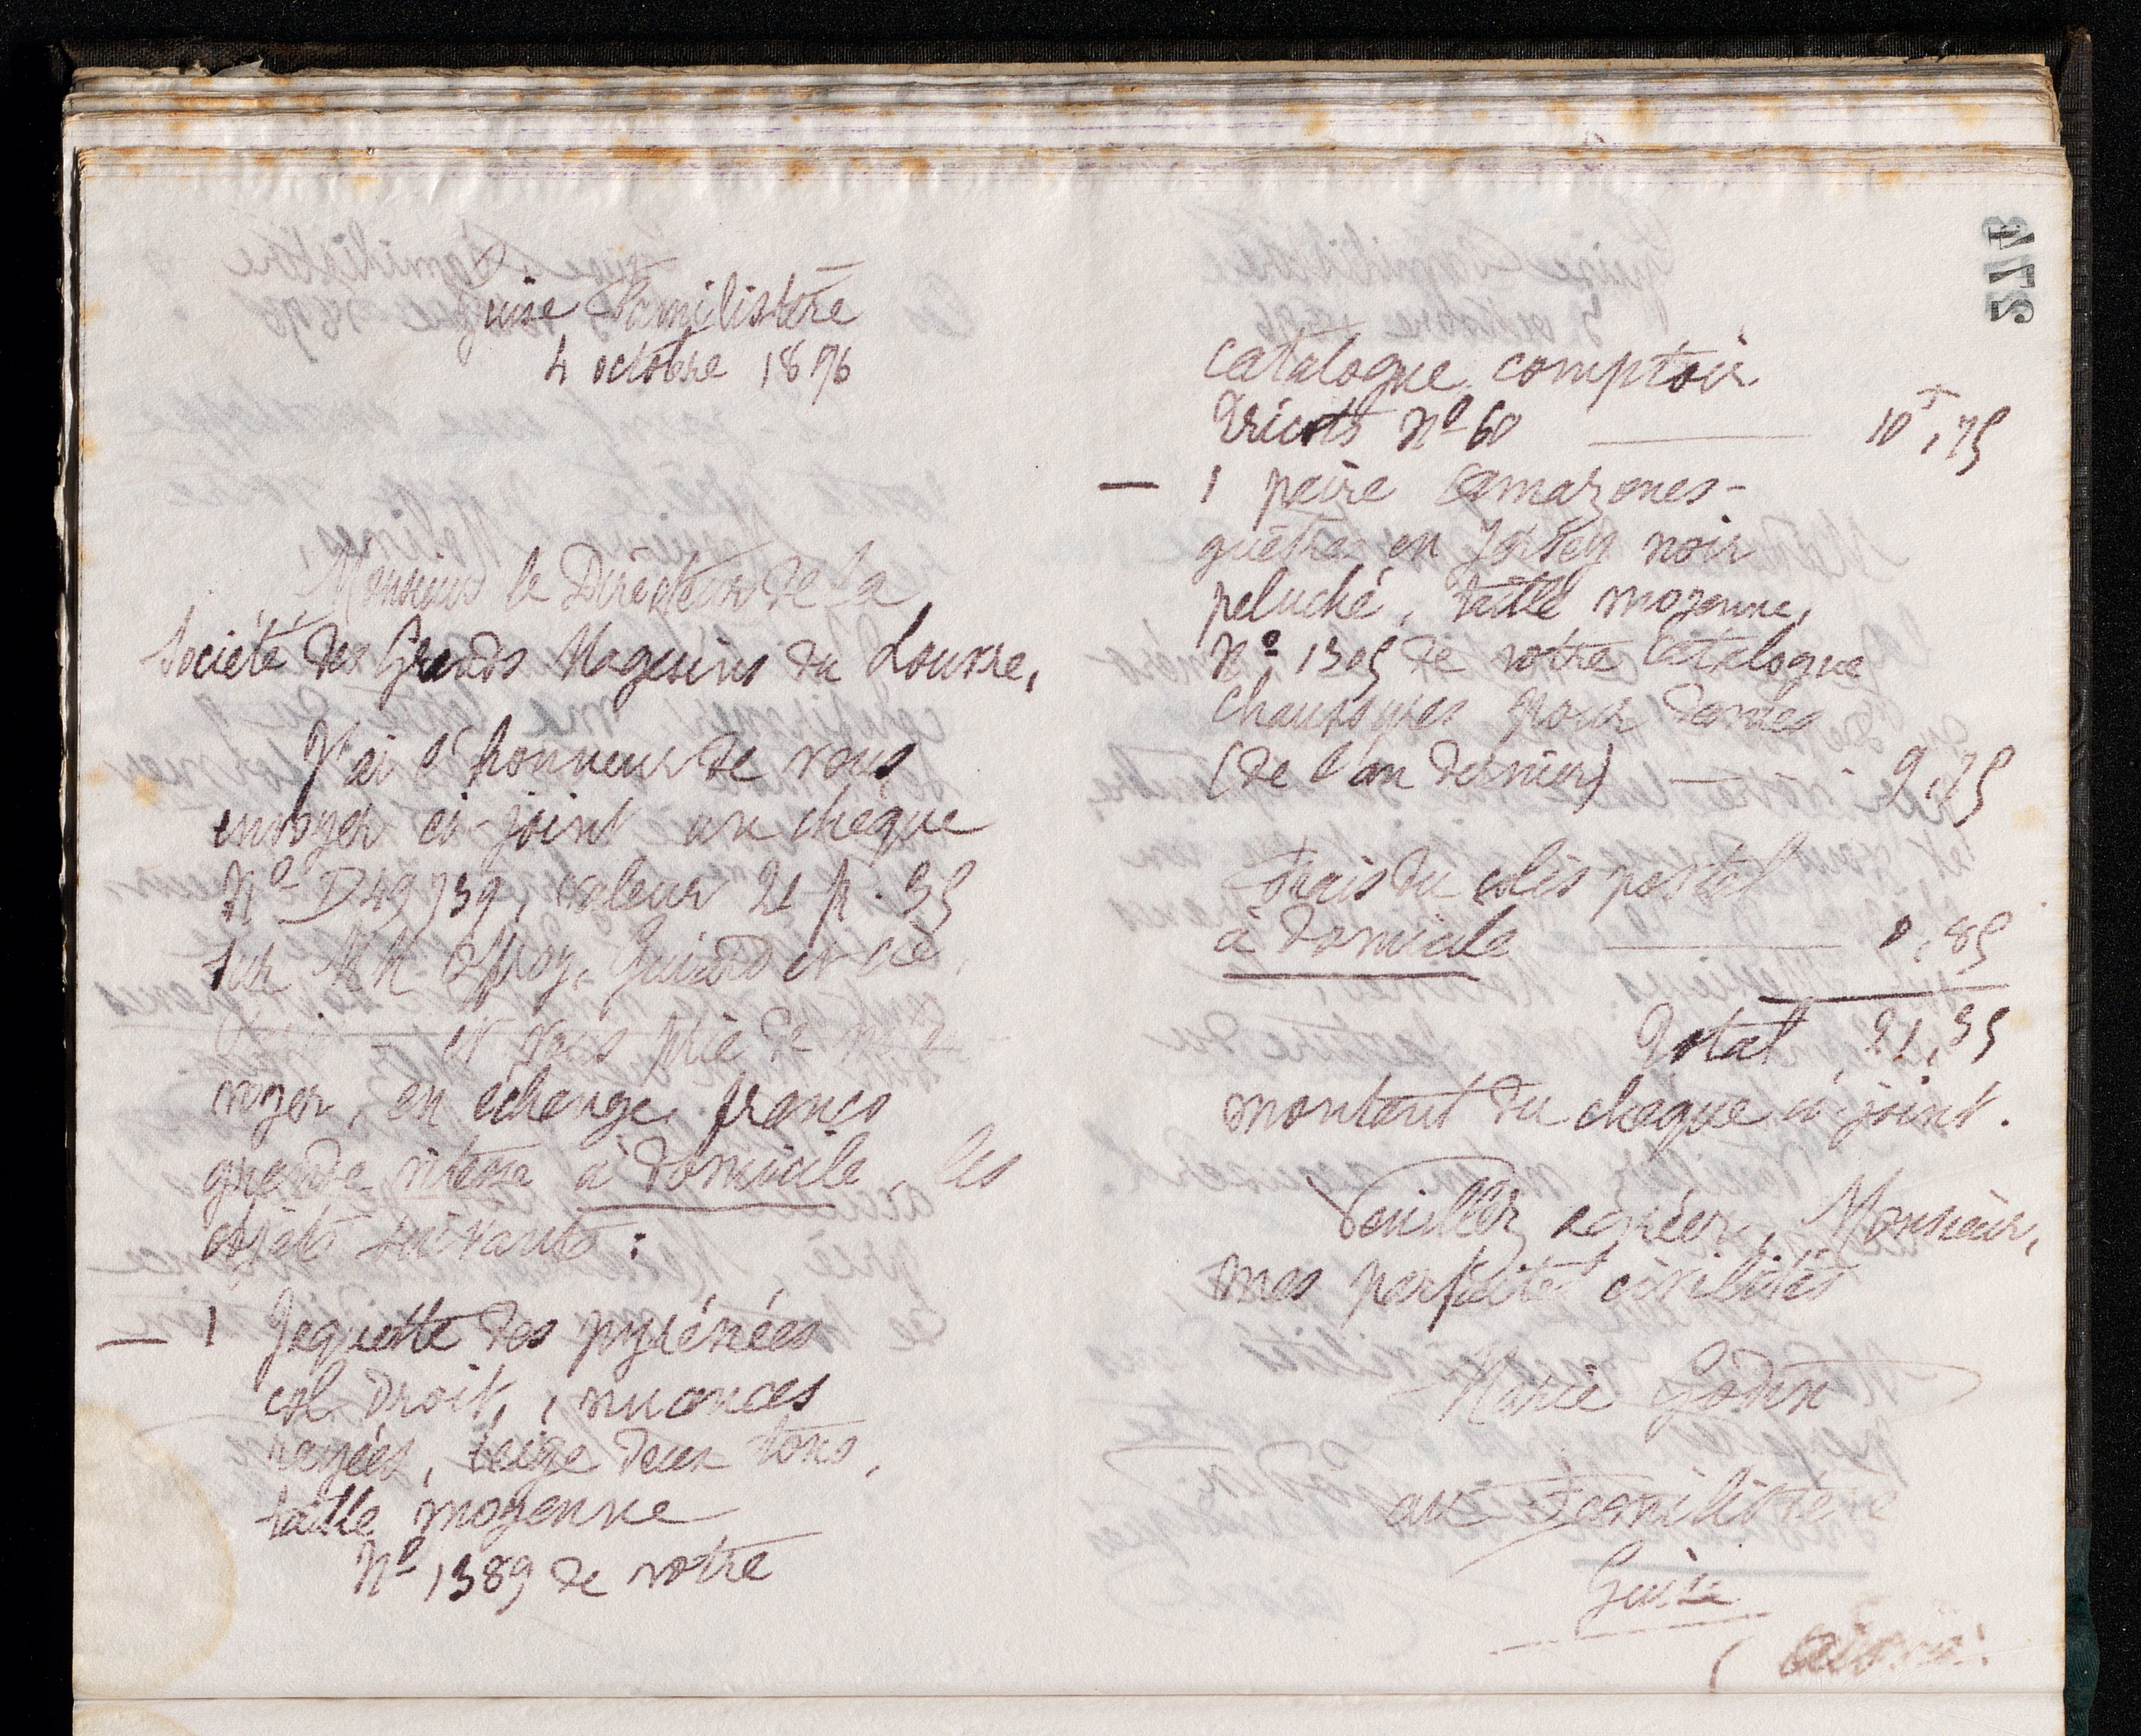 Guise Familistère
4 octobre 1896
Monsieur le Directeur de la
Société des Grands Magasins du Louvre,
J'ai l'honneur de vous
envoyer ci-joint un chèque
No D49739, valeur 21 fr. 35
sur MM Offroy, Guiard et Cie,
et vous prie de m'
voyer, en échange, franco
grande vitesse à domicile, les
objets suivants :
— 1 Jaquette des pyrénées
col droit, nuances
rayées, beige deux tons,
taille moyenne
No 1389 de votre
catalogue comptoir
Tricots No 60 — 10f,75
— 1 paire amazones-
guêtres en Jersey noir
peluché, taille moyenne,
No 1305 de votre Catalogue
Chaussures pour dames
(de l'an dernier) — 9,75
Frais du colis postal
à domicile — 0,85
Total 21,35
montant du chèque ci-joint.
Veuillez agréer, Monsieur,
mes parfaites civilités
Marie Godin
au Familistère
Guise
(Aisne)
472